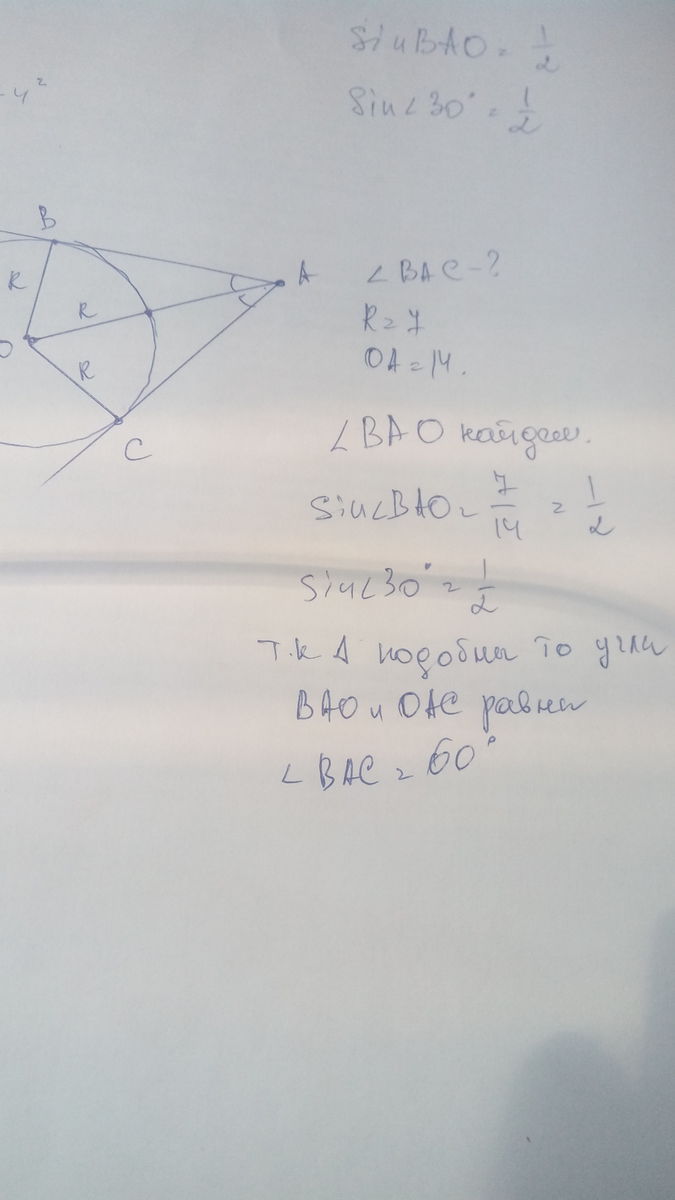 Sin BAO = 1/2
Sin∠30° = 1/2
- 4²
B
R
A
R
O
R
C
∠BAC - ?
R = 7
OA = 14.
∠BAO найдем.
Sin∠BAO = 7/14 = 1/2
Sin∠30° = 1/2
Т.к Δ подобны то углы
BAO и OAC равны
∠BAC = 60°